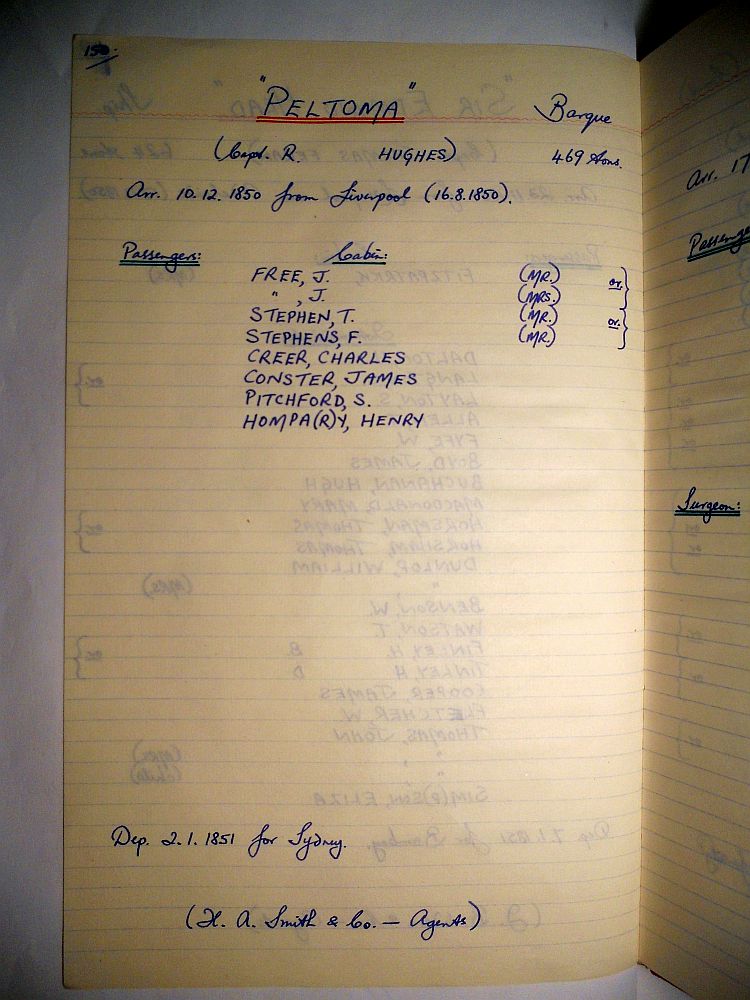 150.
"PELTOMA" Barque
(Capt. R. HUGHES) 469 tons.
Arr. 10.12.1850 from Liverpool (16.8.1850).
Arr. 17
Passengers: Cabin:
Passenge
FREE, J. (MR.) or.
" , J. (MRS.)
STEPHEN, T. (MR.) or.
STEPHENS, F. (MR.)
CREER, CHARLES
CONSTER, JAMES
PITCHFORD, S.
HOMPA(R)Y, HENRY
Surgeon:
Dep. 2.1.1851 for Sydney.
(H. A. Smith & Co. — Agents)